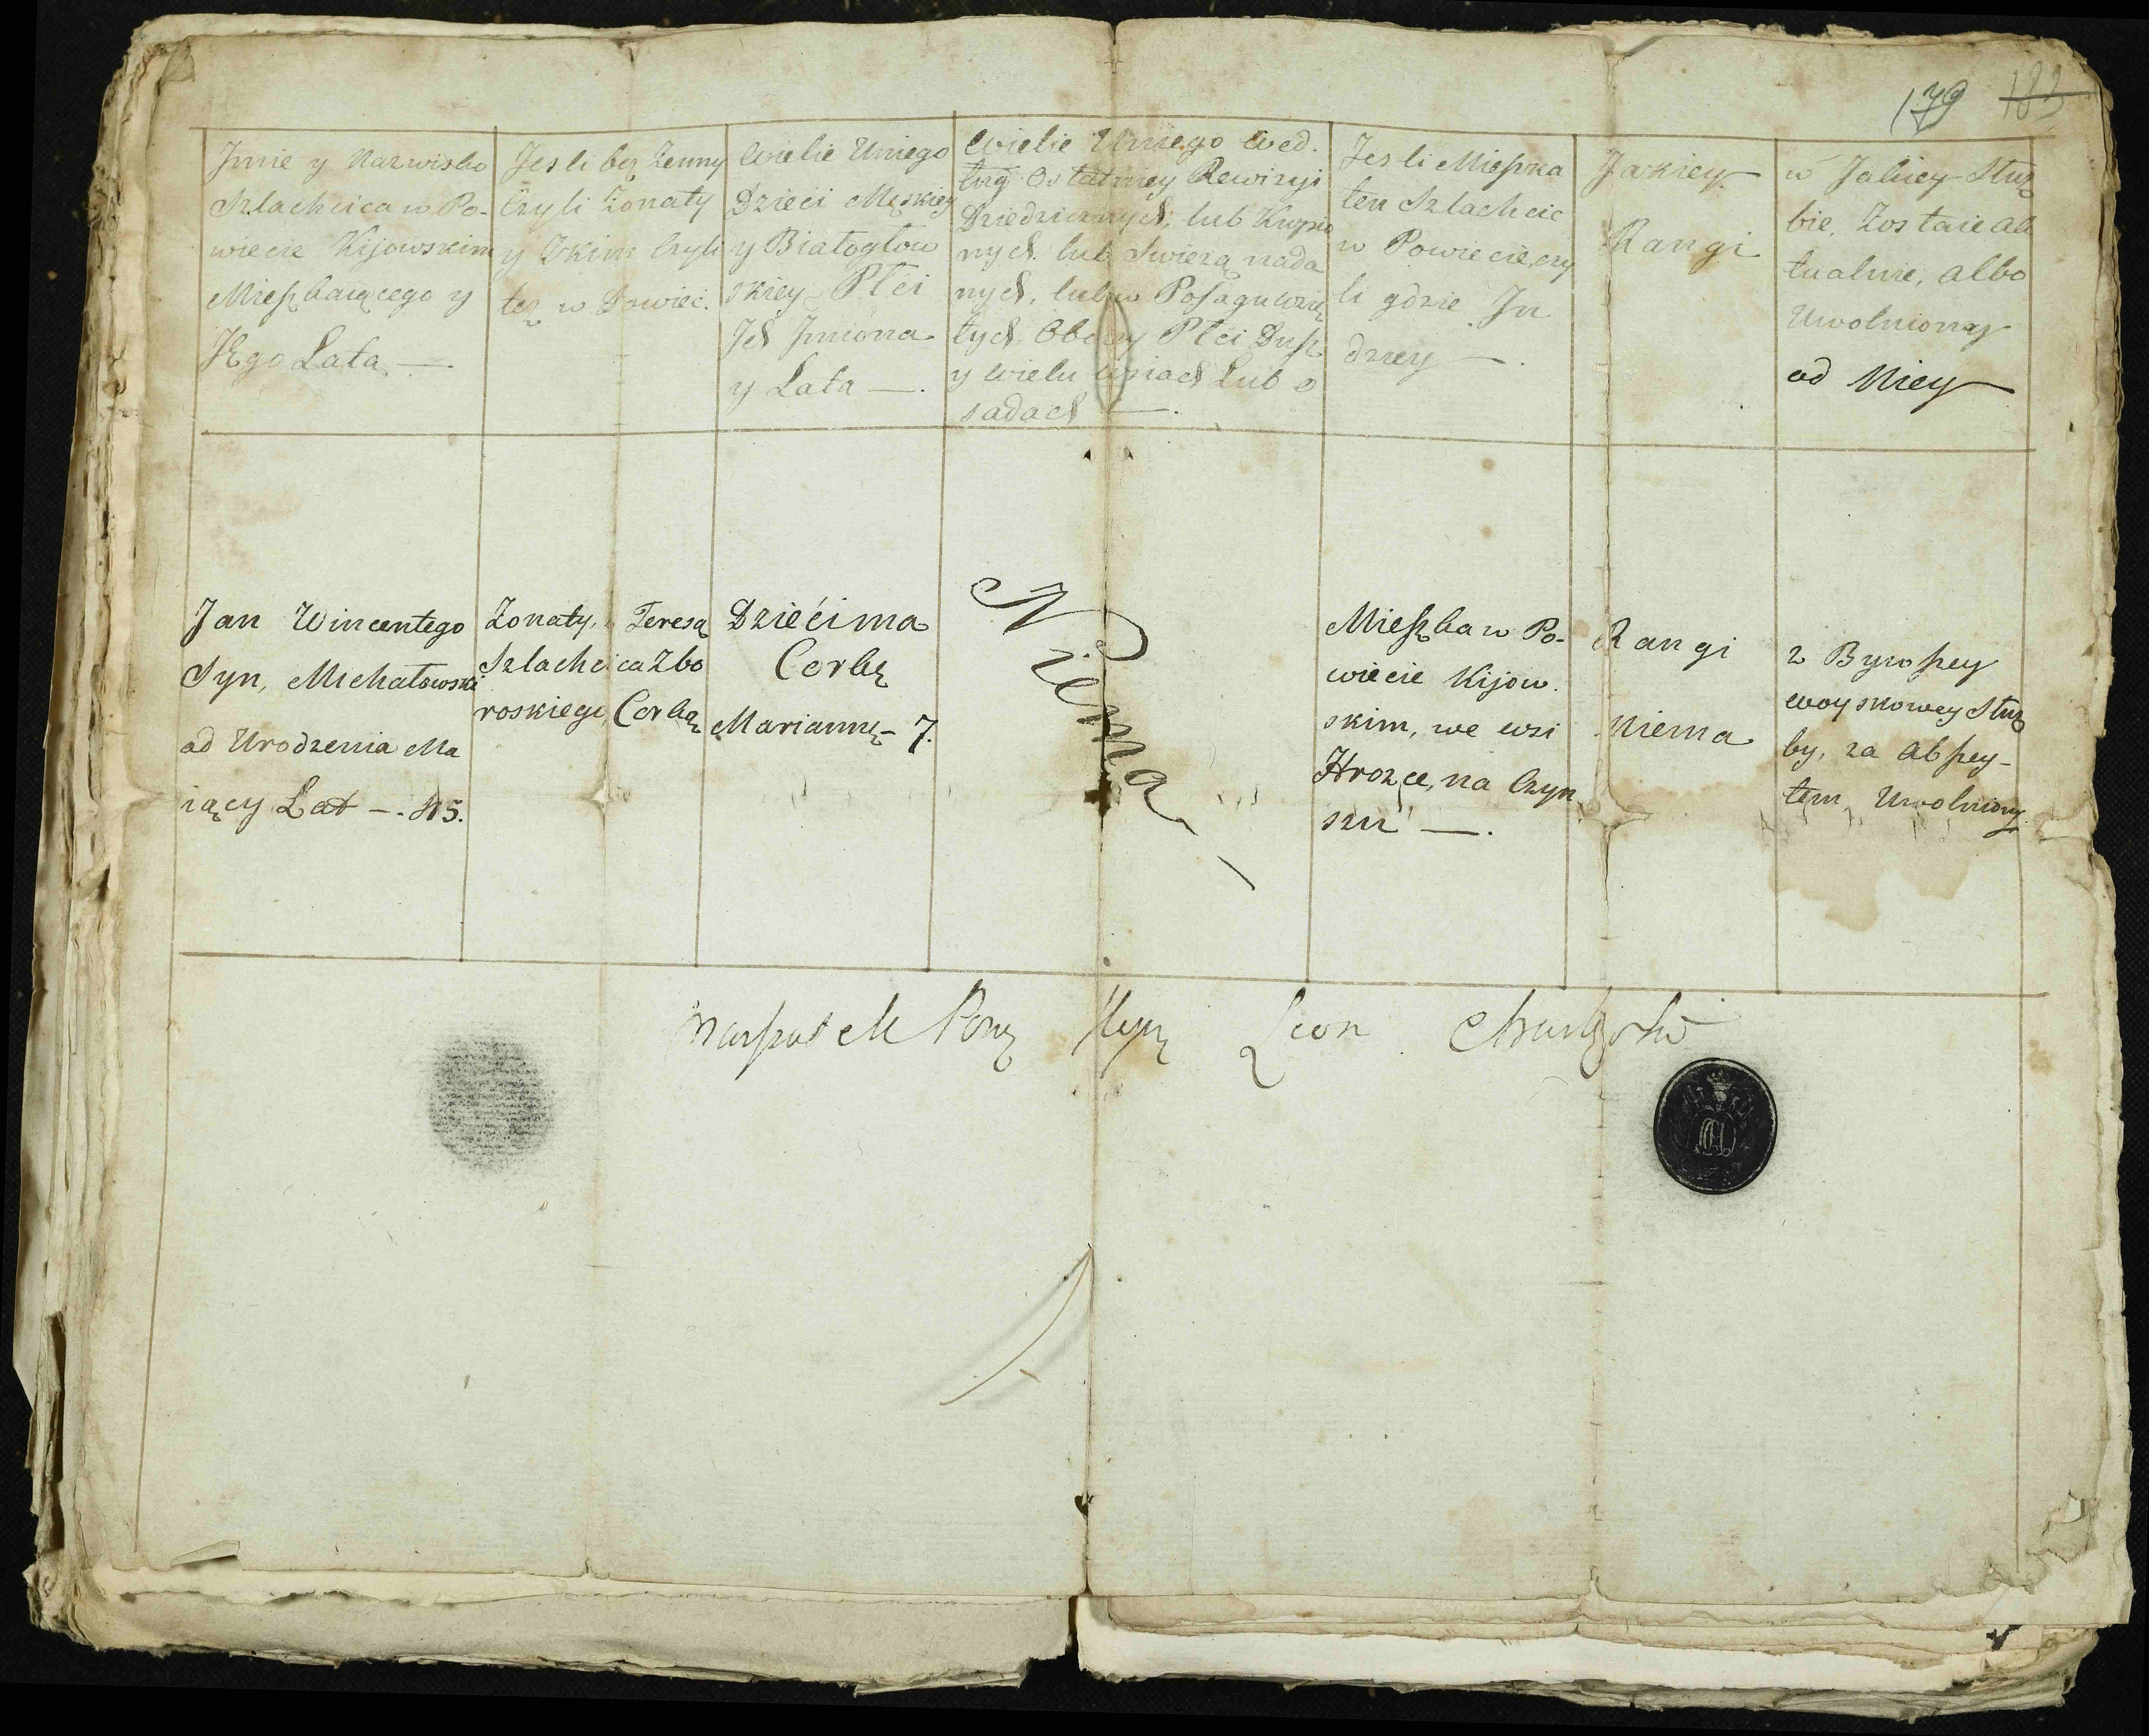 179 183
Jmie y Nazwisko
Szlachcica w Po-
wiecie Kijowskim
Mieszkaiącego y
Jego Lata —
Jesli bez Zenny
Czyli Zonaty
y Zkim Czyli
tez w Dowiec.
Wiele Uniego
Dzieci Męskiey
y Białogłow
skiey Płci
Jch Jmiona
y Lata —.
Wiele Uniego wed.
ług Ostatniey Rewizyi
Dziedzicznych, lub Kupio
nych lub Swiezą nada
nych, lub w Posagu wzię
tych Oboiey Płci Dusz
y wielu wsiach Lub o
sadach —.
Jesli Mieszka
ten Szlachcic
w Powiecie, czy
li gdzie Jn
dziey —.
Jakiey
Rangi
w Jakiey Służ
bie, Zostaie ak
tualnie, albo
Uwolniony
od Niey
Jan Wincentego
Syn, Michałowski
od Urodzenia Ma
iący Lat —. 45.
Zonaty, Teresą
Szlachcica Zbo
roskiego, Corką
Dzieći ma
Corkę
Mariannę - 7.
Niema —
Mieszka w Po-
wiecie Kijow.
skim, we wsi
Hrozce, na Czyn
szu —.
Rangi
Niema
z Bywszey
woyskowey Służ
by, za Abszey-
tem, Uwolniony
Leon